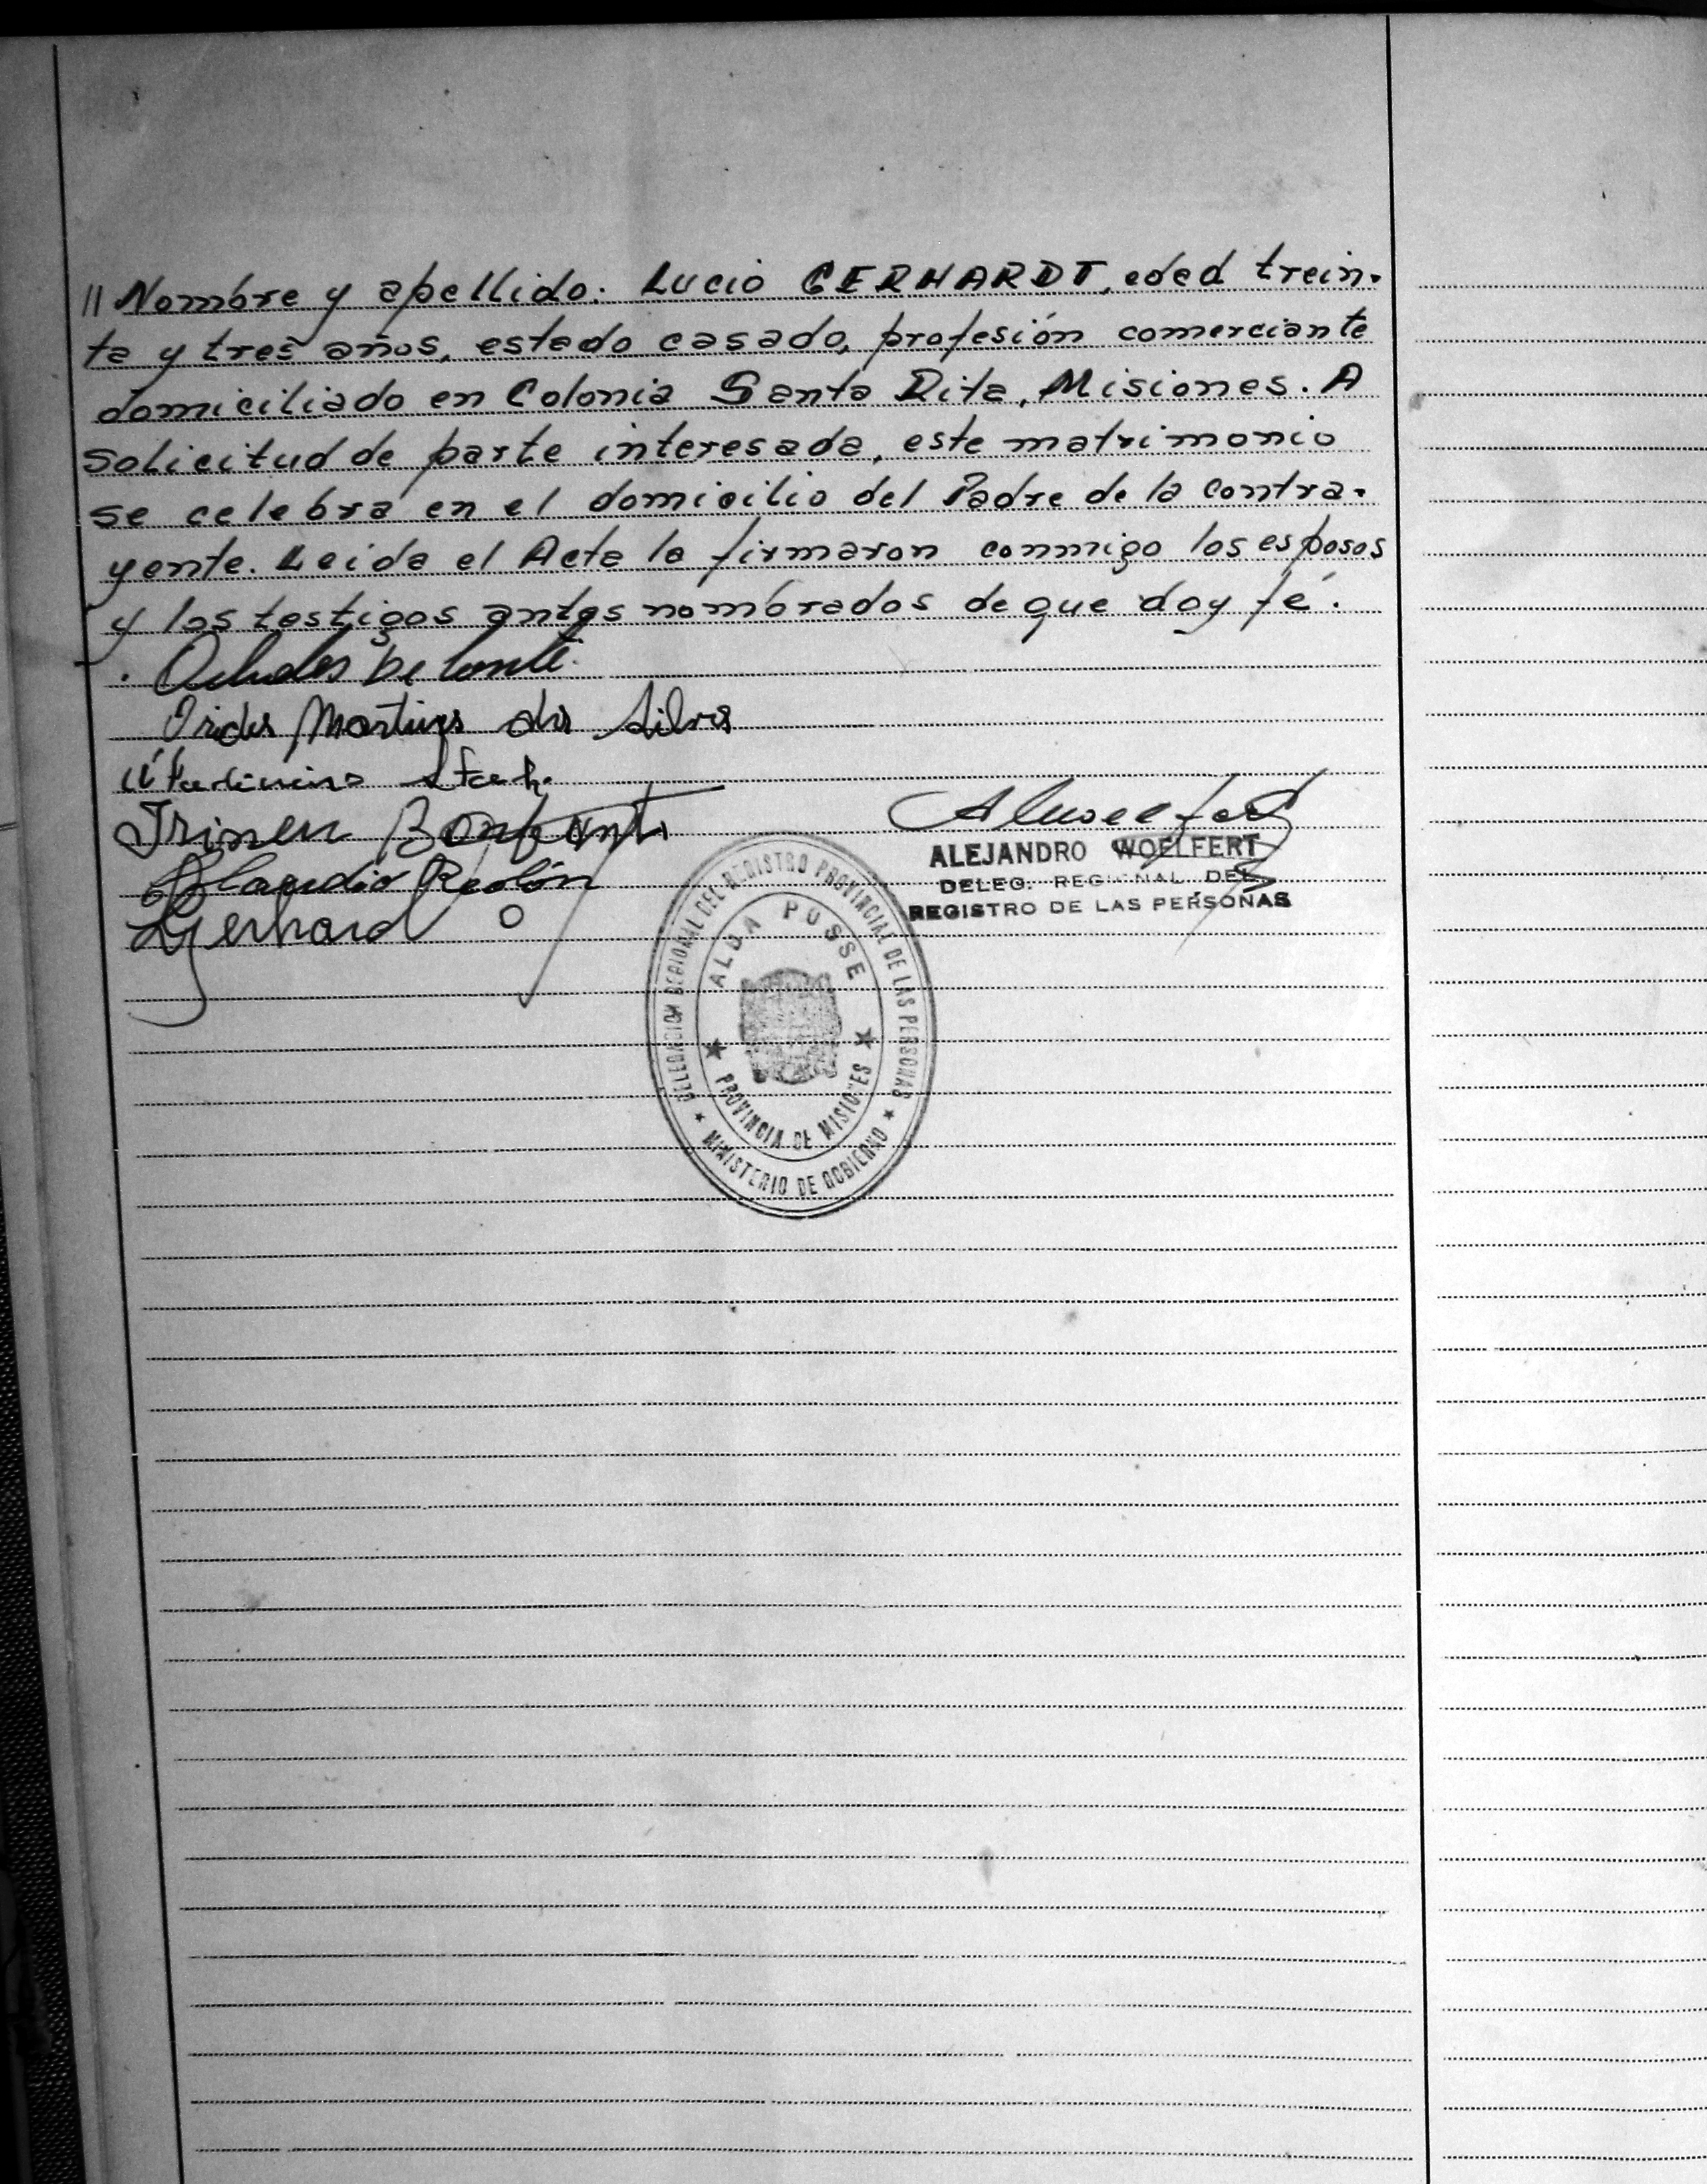 // Nombre y apellido: Lucio GERHARDT, edad trein-
ta y tres años, estado casado, profesión comerciante
domiciliado en Colonia Santa Rita, Misiones. A
solicitud de parte interesada, este matrimonio
se celebra en el domicilio del Padre de la contra-
yente. Leida el Acta la firmaron conmigo los esposos
y los testigos antes nombrados de que doy fé.
Martins da Silva
Bonfanti
Claudio Rolón
Gerhard
ALEJANDRO WOELFERT
DELEG. REGIONAL DEL
REGISTRO DE LAS PERSONAS
DELEGACION REGIONAL DEL REGISTRO PROVINCIAL DE LAS PERSONAS
ALBA POSSE
PROVINCIA DE MISIONES
MINISTERIO DE GOBIERNO